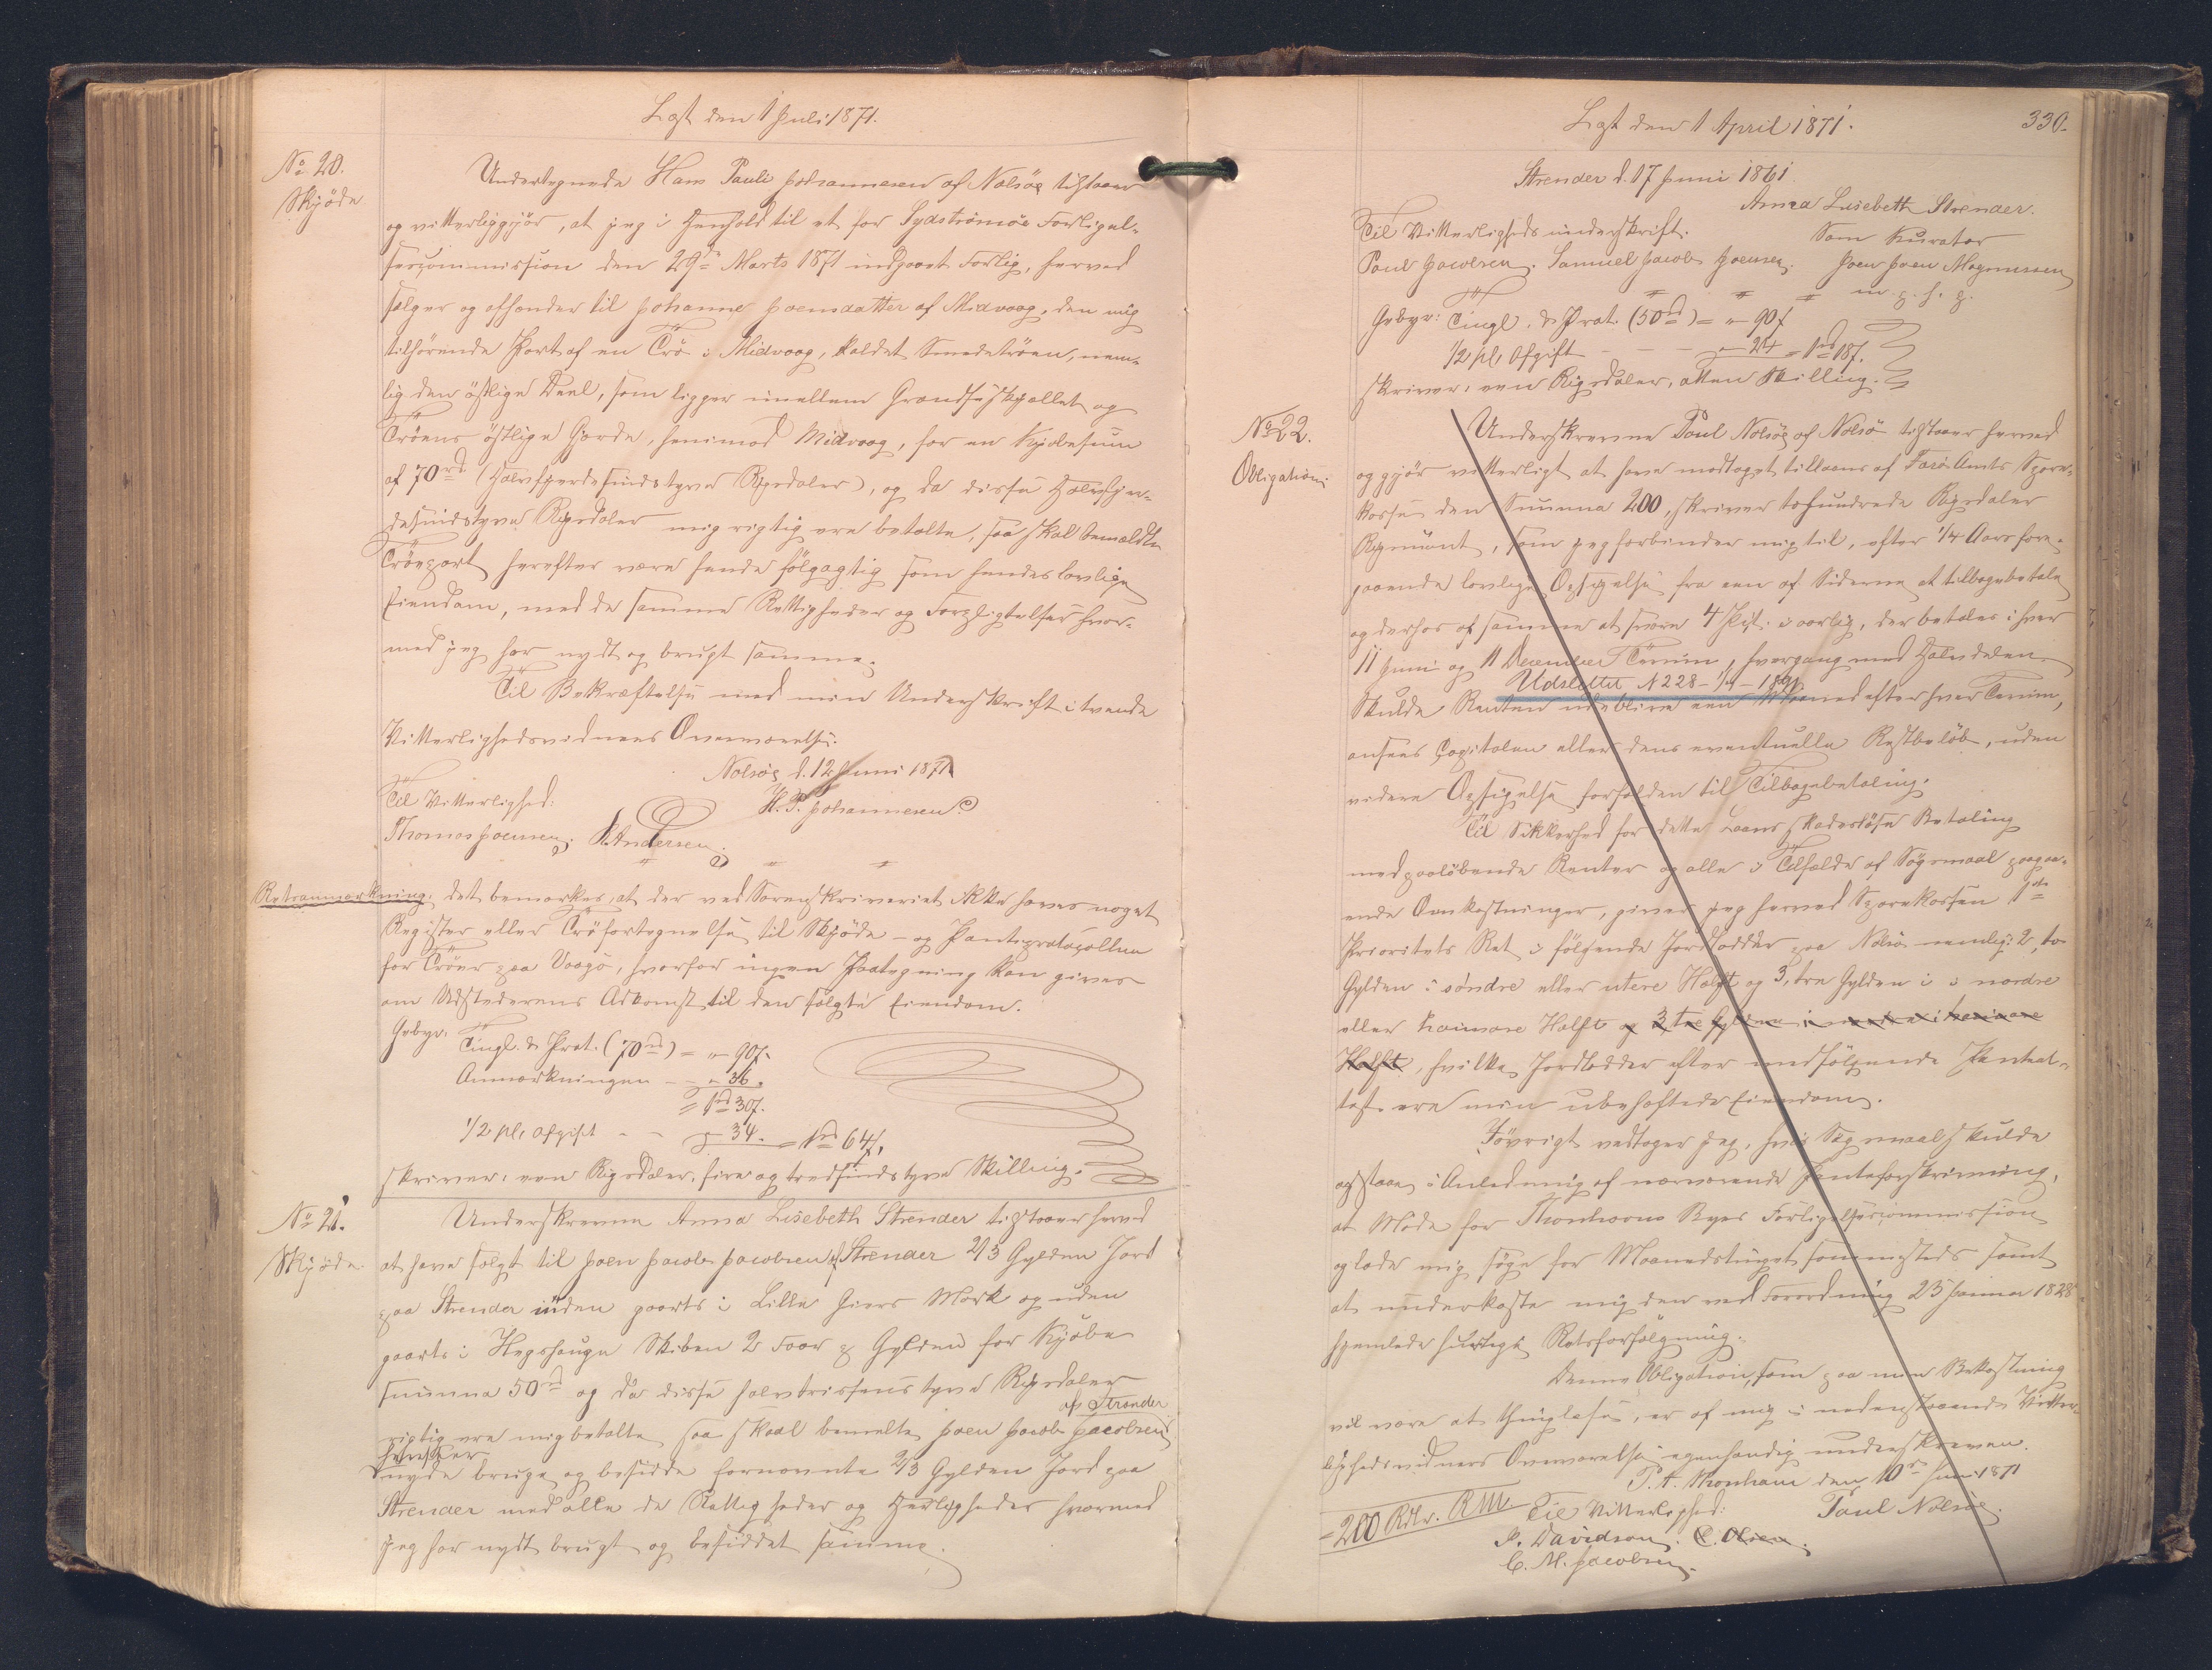 Læst den 1 Juli 1871.
No 20.
Skjöde
Undertegnede Hans Pauli Johannesen af Nolsöe tilstaaer
og vitterliggjör, at jeg i Henhold til et for Sydströmöe Forligel-
sescommission den 29de Marts 1871 indgaaet Forlig, herved
sælger og afhænder til Johanne Joensdatter af Midvaag, den mig
tilhörende Part af en Trö i Midvaag, kaldet Smedetröen, nem-
lig den östlige Deel, som ligger imellem Grændseskjellet og
Tröens östlige Gjærde, henimod Midvaag, for en Kjöbesum
af 70rd (Halvfjerdesindstyve Rigsdaler), og da disse Halvfjer-
desindstyve Rigsdaler mig rigtig ere betalte, saa skal bemeldte
Tröepart herefter være hende fölgagtig som hendes lovlige
Eiendom, med de samme Rettigheder og Forpligtelser hvor-
med jeg har nydt og brugt samme.
Til Bekræftelse med min Underskrift i tvende
Vitterlighedsvidners Overværelse.
Nolsöe d. 12 Juni 1871
Til Vitterlighed:
H. P. Johannesen
Thomas Joensen. K. Andersen.
Retsanmærkning: det bemærkes, at der ved Sorenskriveriet ikke haves noget
Register eller Tröfortegnelse til Skjöde- og Panteprotocollen
for Tröer paa Vaagö, hvorfor ingen Paategning kan gives
om Udstederens Adkomst til den solgte Eiendom.
Gebyr: Tingl. & Prot. (70rd) = " 90ß.
Anmærkningen - - " 36.
= 1rd 30ß.
1/2 pCt Afgift - - " 34. = 1rd 64ß.
skriver: een Rigsdaler, fire og tredsindstyve Skilling.
No 21.
Skjöde.
Underskrevne Anna Lisebeth Strender tilstaaer herved
at have solgt til Joen Jacob Jacobsen af Strender 2/3 Gylden Jord
paa Strender inden gaarts i Lille Giers Mark og uden
gaarts i Hegshauge Skiben 2 Faar p Gylden for Kjöbe
summa 50rd og da disse halvtrissens tyve Rigsdaler
rigtig ere mig betalte saa skal bemelte Joen Jacob Jacobsen af Strender
herefter
nyde bruge og besidde fornævnte 2/3 Gylden Jord paa
Strender med alle de Rettigheder og Herligheder hvormed
jeg har nydt brugt og besiddet samme.
Læst den 1 April 1871.
330.
Strender d. 17 Juni 1861.
Anna Lisebeth Strender.
Til Vitterligheds underskrift.
Som Kurator
Poul Jacobsen. Samuel Jacob Joensen. Joen Joen Magnussen
m. p. h. p.
Gebyr: Tingl. & Prot. (50rd) = " 90ß
1/2 pCt Afgift - - - " 24 = 1rd 18ß.
skriver, een Rigsdaler, atten Skilling.
No 22.
Obligation.
Underskrevne Poul Nolsöe af Nolsö tilstaaer herved
og gjör vitterligt at have modtaget tillaans af Færö Amts Spare-
kasse den Summa 200, skriver tohundrede Rigsdaler
Rigsmönt, som jeg forbinder mig til, efter 1/4 Aars fore-
gaaende lovlige Opsigelse fra een af Siderne at tilbagebetale
og derhos af samme at svare 4 pCt. i aarlig, der betales i hver
11 Juni og 11 December Termin, hvergang med Halvdelen.
Udslettet N 228 - 1/4 -
Skulde Renten udeblive een Maaned efter hver Termin,
ansees Capitalen eller dens eventuelle Restbelöb, uden
videre Opsigelse forfalden til Tilbagebetaling.
Til Sikkerhed for dette Laans skadeslöse Betaling
med paalöbende Renter og alle i Tilfælde af Sögsmaal paagaa-
ende Omkostninger, giver jeg herved Sparekassen 1ste
Prioritets Ret i fölgende Jordlodder paa Nolsö nemlig: 2, to
Gylden i söndre eller utere Halft og 3, tre Gylden i i nordre
eller haimare Halft og 3 tre Gylden i nordre i haimare
Halft, hvilke Jordlodder efter medfölgende Panteat-
test ere min ubehæftede Eiendom.
Jövrigt vedtager jeg, hvis Sögsmaal skulde
opstaae i Anledning af nærværende Panteforskrivning,
at Möde for Thorshavns Byes Forligelsescommission
og lade mig söge for Maanedstinget sammesteds samt
at underkaste mig den ved Forordning 25 Januar 1828
hjemlede hurtige Retsforfölgning.
Denne Obligation, som paa min Bekostning
vil være at thinglæse, er af mig i nedenstaaende Vitter-
lighedsvidners Overværelse egenhændig underskreven.
P. t. Thorshavn den 10de Juni 1871
= 200 Rdlr. RM.
Til Vitterlighed:
Poul Nolsöe.
P. Davidson. C. Olsen.
C. M. Jacobsen.